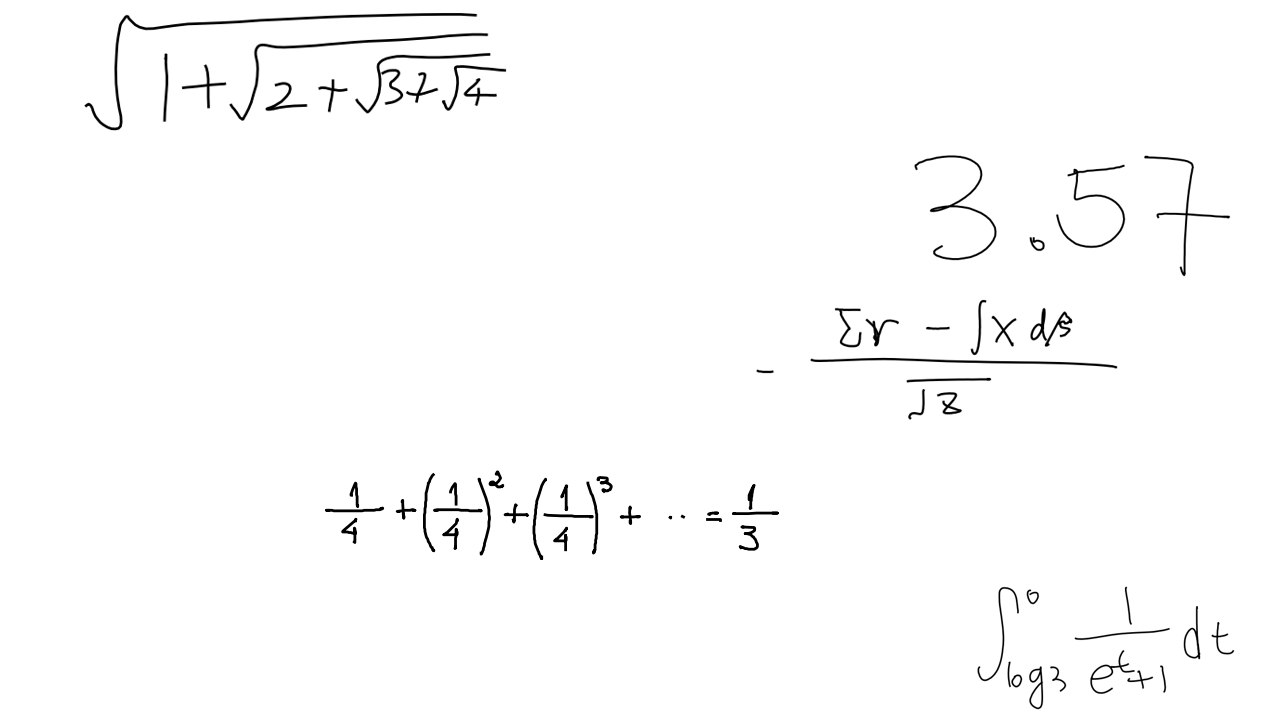 \sqrt{1+\sqrt{2+\sqrt{3+\sqrt{4}}}}
3.57
-\frac{\sum r - \int x ds}{\sqrt{8}}
\frac{1}{4}+\left(\frac{1}{4}\right)^2+\left(\frac{1}{4}\right)^3+\cdots=\frac{1}{3}
\int_{\log 3}^{0}\frac{1}{e^t+1}dt